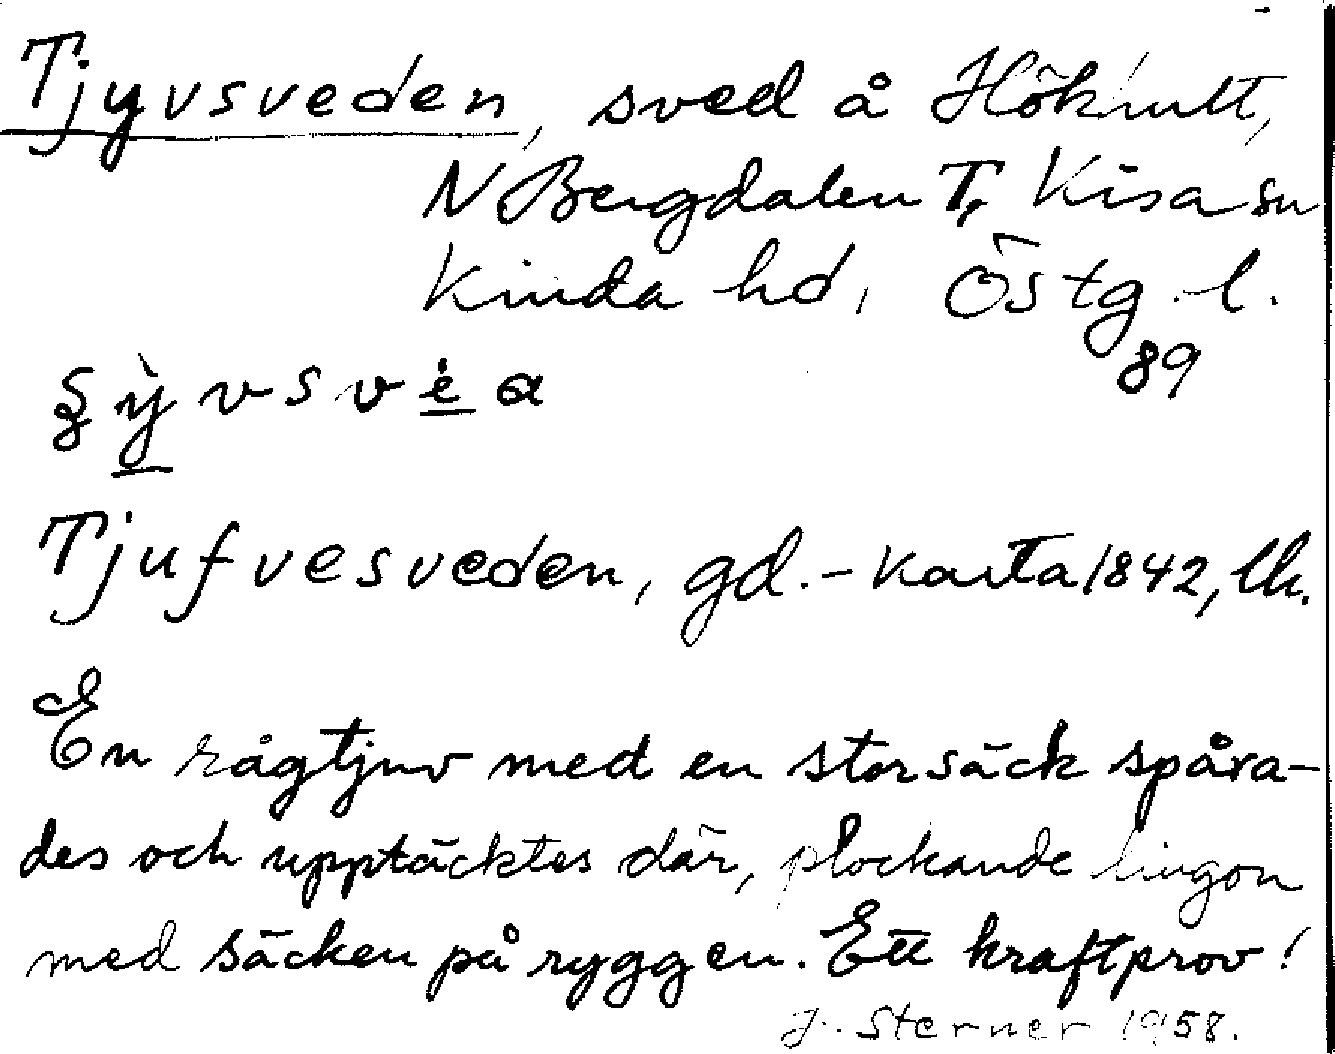 Tjyvsveden, sved å Hökhult,
N Bergdalen T, Kisa sn
Kinda hd, Östg. l.
89
Tjufvesveden, gd. - karta 1842, lk.
En rågtjuv med en stor säck spåra-
des och upptäcktes där, plockande lingon
med säcken på ryggen. Ett kraftprov!
J. Sterner 1958.